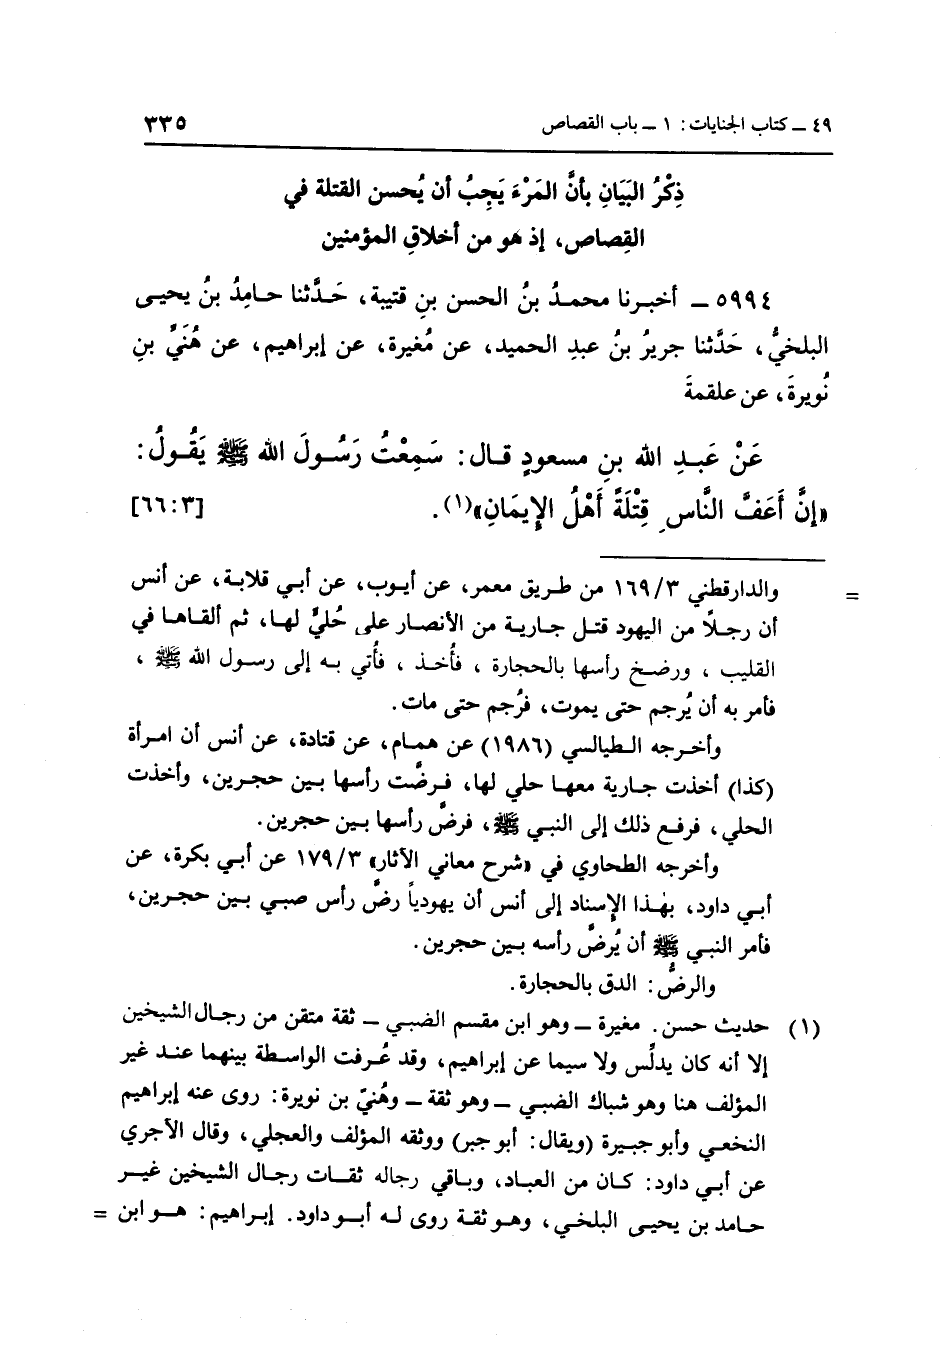 ٤٩ ــ كتاب الجنايات: ١ ــ باب القصاص ٣٣٥
ذِكْرُ البَيَانِ بأنَّ المَرْءَ يَجِبُ أن يُحسن القتلة في
القِصاص، إذ هو من أخلاقِ المؤمنين
٥٩٩٤ ــ أخبرنا محمدُ بنُ الحسن بنِ قتيبة، حَدَّثنا حامِدُ بنُ يحيى
البلخيُّ، حَدَّثنا جريرُ بنُ عبدِ الحميد، عن مُغيرة، عن إبراهيم، عن هُنَيِّ بنِ
نُويرةَ، عن علقمةَ
عَنْ عَبدِ الله بنِ مسعودٍ قال: سَمِعْتُ رَسُولَ الله ﷺ يَقُولُ:
«إنَّ أَعَفَّ النَّاسِ قِتْلَةً أَهْلُ الإِيمَانِ»(١). [٦٦:٣]
= والدارقطني ١٦٩/٣ من طريق معمر، عن أيوب، عن أبي قلابة، عن أنس
أن رجلًا من اليهود قتل جارية من الأنصار على حُليٍّ لها، ثم ألقاها في
القليب ، ورضخ رأسها بالحجارة ، فأُخذ ، فأُتي به إلى رسول الله ﷺ ،
فأمر به أن يُرجم حتى يموت، فرُجم حتى مات.
وأخرجه الطيالسي (١٩٨٦) عن همام، عن قتادة، عن أنس أن امرأة
(كذا) أخذت جارية معها حلي لها، فرضَّت رأسها بين حجرين، وأخذت
الحلي، فرفع ذلك إلى النبي ﷺ، فرضَّ رأسها بين حجرين.
وأخرجه الطحاوي في «شرح معاني الآثار» ١٧٩/٣ عن أبي بكرة، عن
أبي داود، بهٰذا الإسناد إلى أنس أن يهودياً رضَّ رأس صبي بين حجرين،
فأمر النبي ﷺ أن يُرضَّ رأسه بين حجرين.
والرضُّ: الدق بالحجارة.
(١) حديث حسن. مغيرة ــ وهو ابن مقسم الضبي ــ ثقة متقن من رجال الشيخين
إلا أنه كان يدلِّس ولا سيما عن إبراهيم، وقد عُرفت الواسطة بينهما عند غير
المؤلف هنا وهو شباك الضبي ــ وهو ثقة ــ وهُنيّ بن نويرة: روى عنه إبراهيم
النخعي وأبو جبيرة (ويقال: أبو جبر) ووثقه المؤلف والعجلي، وقال الآجري
عن أبي داود: كان من العباد، وباقي رجاله ثقات رجال الشيخين غير
حامد بن يحيى البلخي، وهو ثقة روى له أبو داود. إبراهيم: هو ابن =